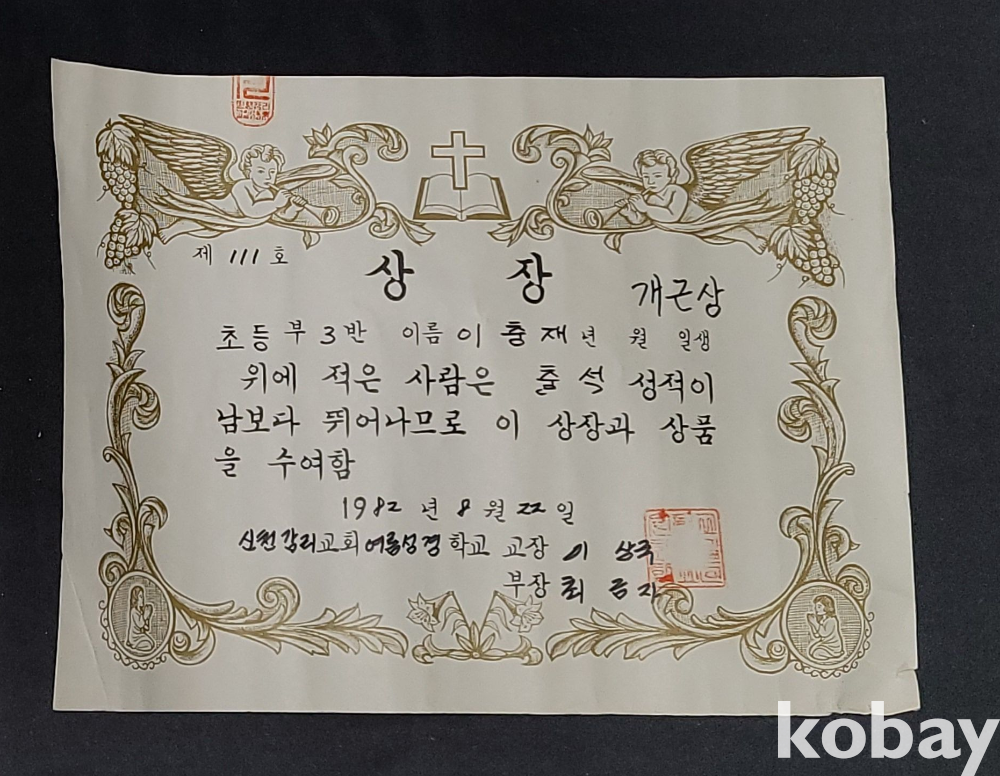 제 111 호
상 장
개근상
초등 부 3 반 이름 이 충 재 년 월 일생
위에 적은 사람은 출 석 성적이
남보다 뛰어나므로 이 상장과 상품
을 수여함
1982 년 8 월 22 일
신천감리교회 여름성경학교 교장 이 상국
부장 최 금자
kobay